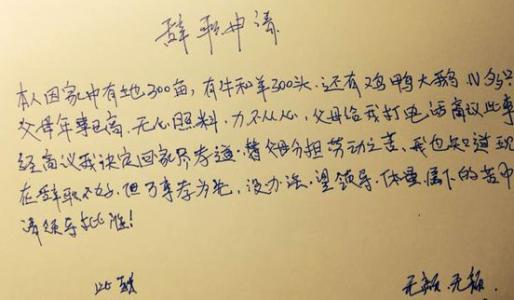 辞职申请
本人因家中有土地300亩，有牛和羊300头，还有鸡鸭大鹅
父母年事已高，无心照料，力不从心，父母给我打电话商议此事
经商议我决定回家尽孝道，替父母分担劳动之苦，我也知道现
在辞职不好，但万事孝为先，没办法，望领导，体量属下的苦中
请领导批准！
此致